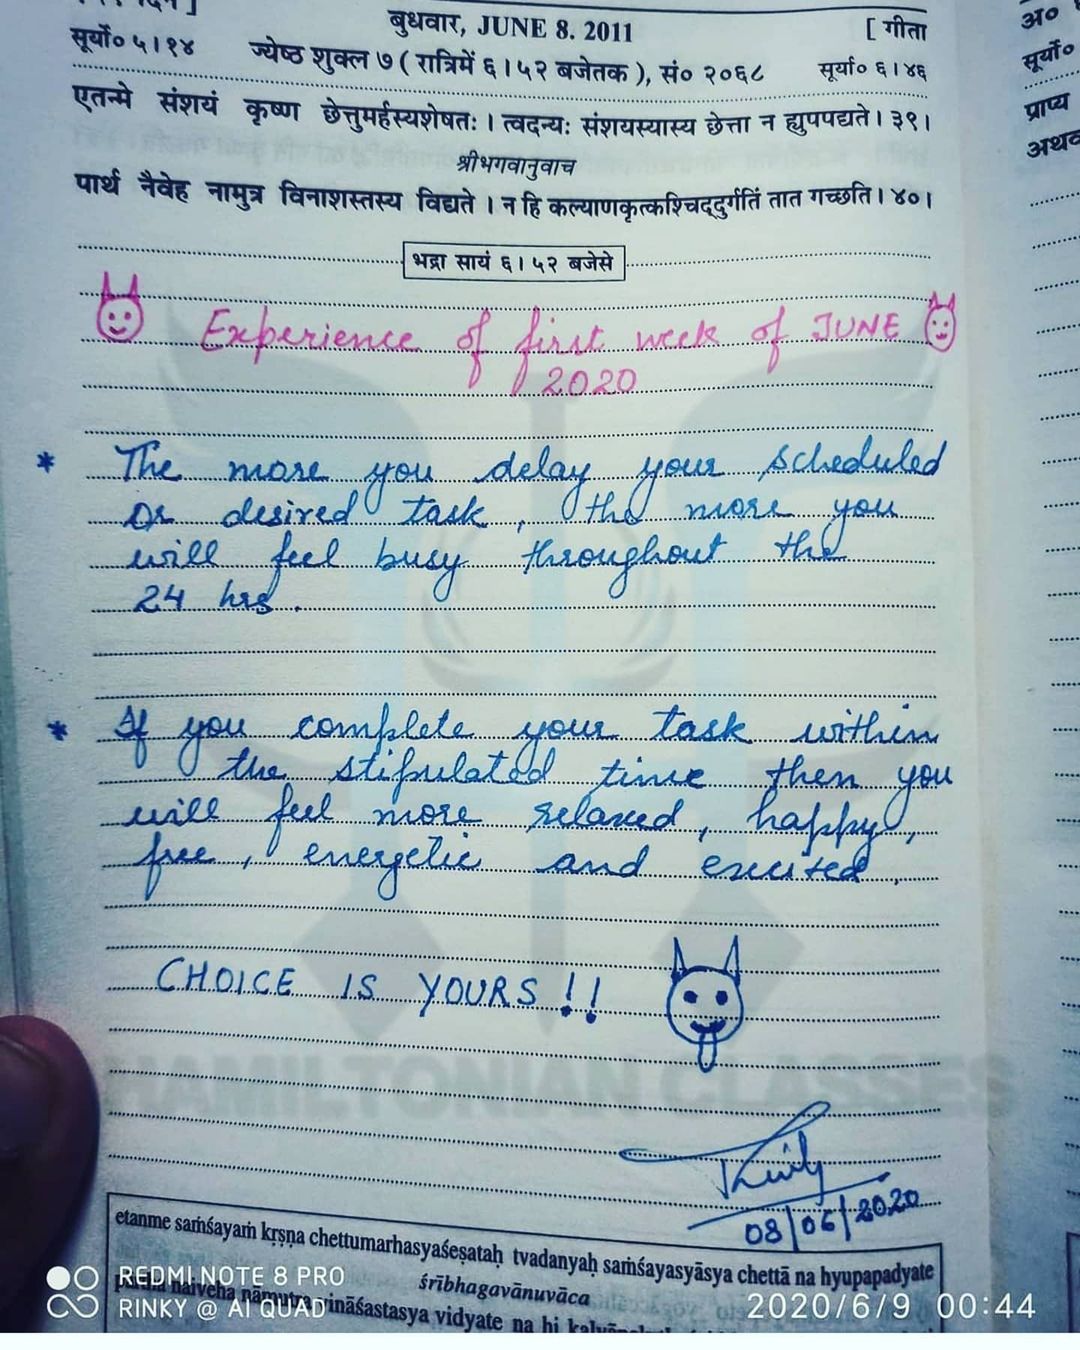 बुधवार, JUNE 8. 2011
[ गीता
सूर्यो० ५।१४ ज्येष्ठ शुक्ल ७ ( रात्रिमें ६।५२ बजेतक ), सं० २०६८ सूर्या० ६।४६
एतन्मे संशयं कृष्ण छेत्तुमर्हस्यशेषतः । त्वदन्यः संशयस्यास्य छेत्ता न ह्युपपद्यते । ३९।
श्रीभगवानुवाच
पार्थ नैवेह नामुत्र विनाशस्तस्य विद्यते । न हि कल्याणकृत्कश्चिद्दुर्गतिं तात गच्छति । ४०।
भद्रा सायं ६।५२ बजेसे
Experience of first week of JUNE
2020
* The more you delay your scheduled
or desired task, the more you
will feel busy throughout the
24 hrs.
* If you complete your task within
the stipulated time then you
will feel more relaxed, happy,
free, energetic and excited.
CHOICE IS YOURS !!
HAMILTONIAN CLASSES
08/06/2020
etanme saṁśayaṁ kṛṣṇa chettumarhasyaśeṣataḥ tvadanyaḥ saṁśayasyāsya chettā na hyupapadyate
śrībhagavānuvāca
pārtha naiveha nāmutra vināśastasya vidyate na hi
REDMI NOTE 8 PRO
RINKY @ AI QUAD
2020/6/9 00:44
अ०
सूर्यो०
प्राप्य